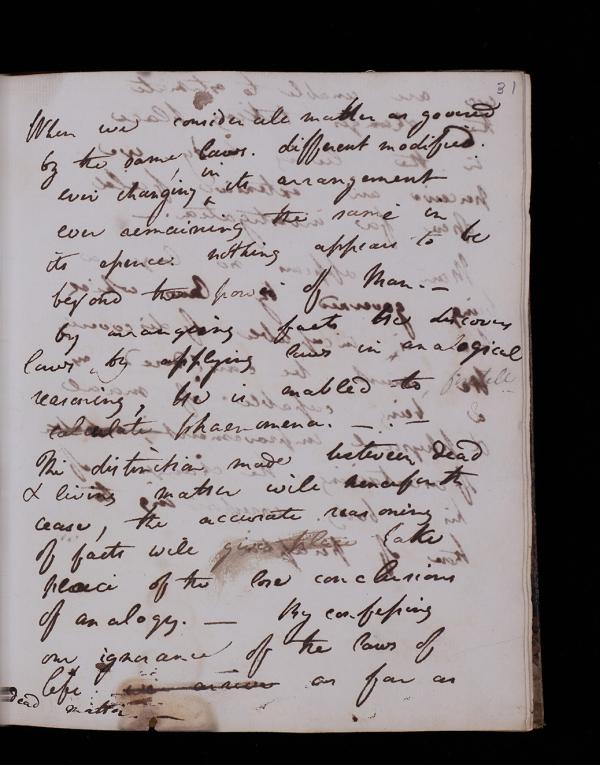 31
When we consider all matter as governed
by the same laws. different modified.
ever changing in its arrangement
ever remaining the same in
its essence. nothing appears to be
beyond the power of Man. —
by arranging facts He discovers
laws, by applying laws in analogical
reasoning, He is enabled to foretell
calculate phaenomena. — . —
The distinction made between dead
& living matter will henceforth
cease, the accurate reasoning
of facts will give place take
place of the lose conclusions
of analogy. — By confessing
our ignorance of the laws of
life as far as
dead matter. —